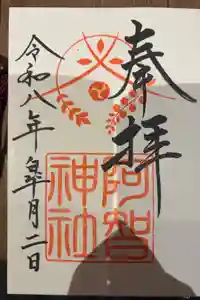 奉拝
阿智神社
令和八年皐月二日